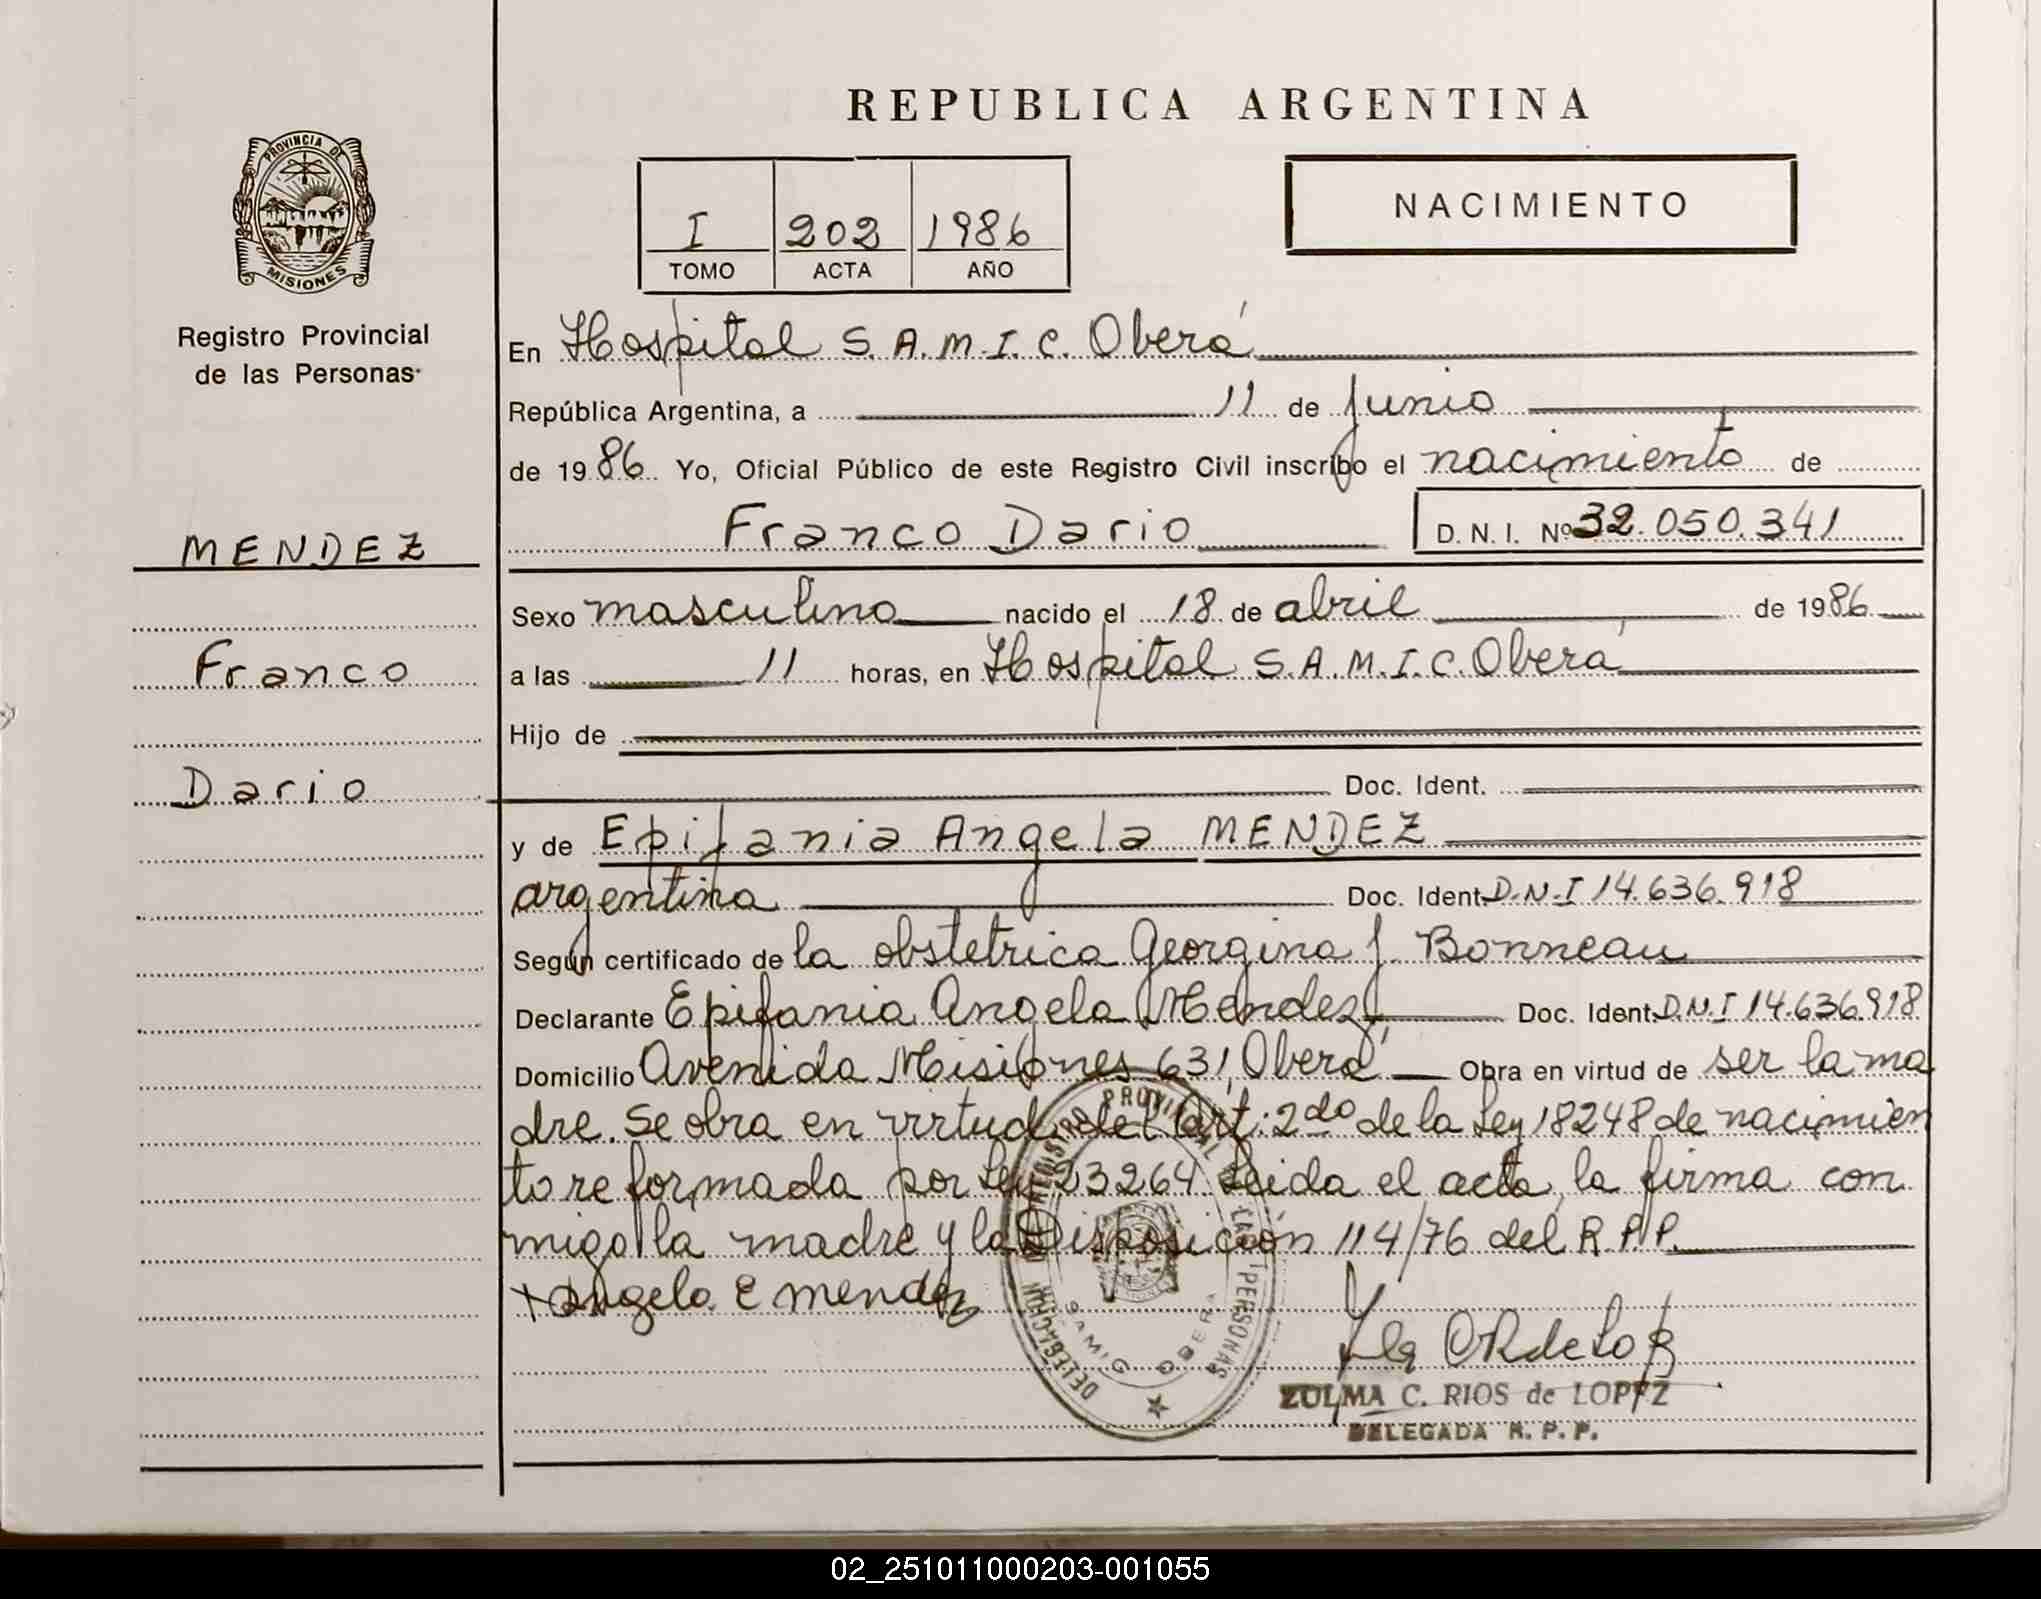 REPUBLICA ARGENTINA
PROVINCIA DE
MISIONES
Registro Provincial
de las Personas
I 202 1986
TOMO ACTA AÑO
NACIMIENTO
En Hospital S.A.M.I.C. Oberá
República Argentina, a 11 de Junio
de 1986 Yo, Oficial Público de este Registro Civil inscribo el nacimiento de
Franco Dario D. N. I. Nº 32.050.341
MENDEZ
Franco
Dario
Sexo masculino nacido el 18 de abril de 1986
a las 11 horas, en Hospital S.A.M.I.C. Oberá
Hijo de
Doc. Ident.
y de Epifania Angela MENDEZ
argentina Doc. Ident. D.N.I 14.636.918
Según certificado de la obstetrica Georgina J. Bonneau
Declarante Epifania Angela Mendez Doc. Ident. D.N.I 14.636.918
Domicilio Avenida Misiones 631, Oberá Obra en virtud de ser la ma
dre. Se obra en virtud del Art: 2do de la Ley 18248 de nacimien
to reformada por Ley 23264 Leida el acta, la firma con
migo la madre y la Disposición 114/76 del R.P.P.
Angela E mendez
REGISTRO PROVINCIAL DE LAS PERSONAS
DELEGACION
SAMIC OBERA
ZULMA C. RIOS de LOPEZ
DELEGADA R. P. P.
02_251011000203-001055